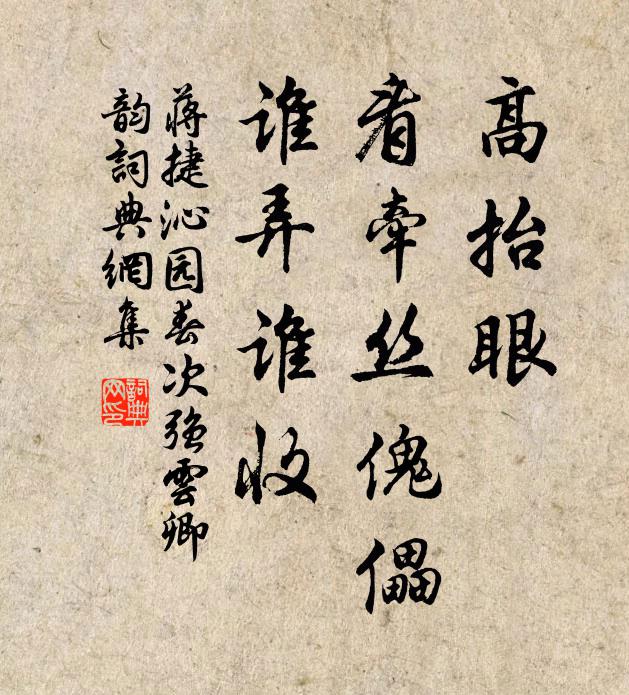 高抬眼
看牵丝傀儡
谁弄谁收
蒋捷沁园春次强雲卿
韵詞典網集
詞典网印